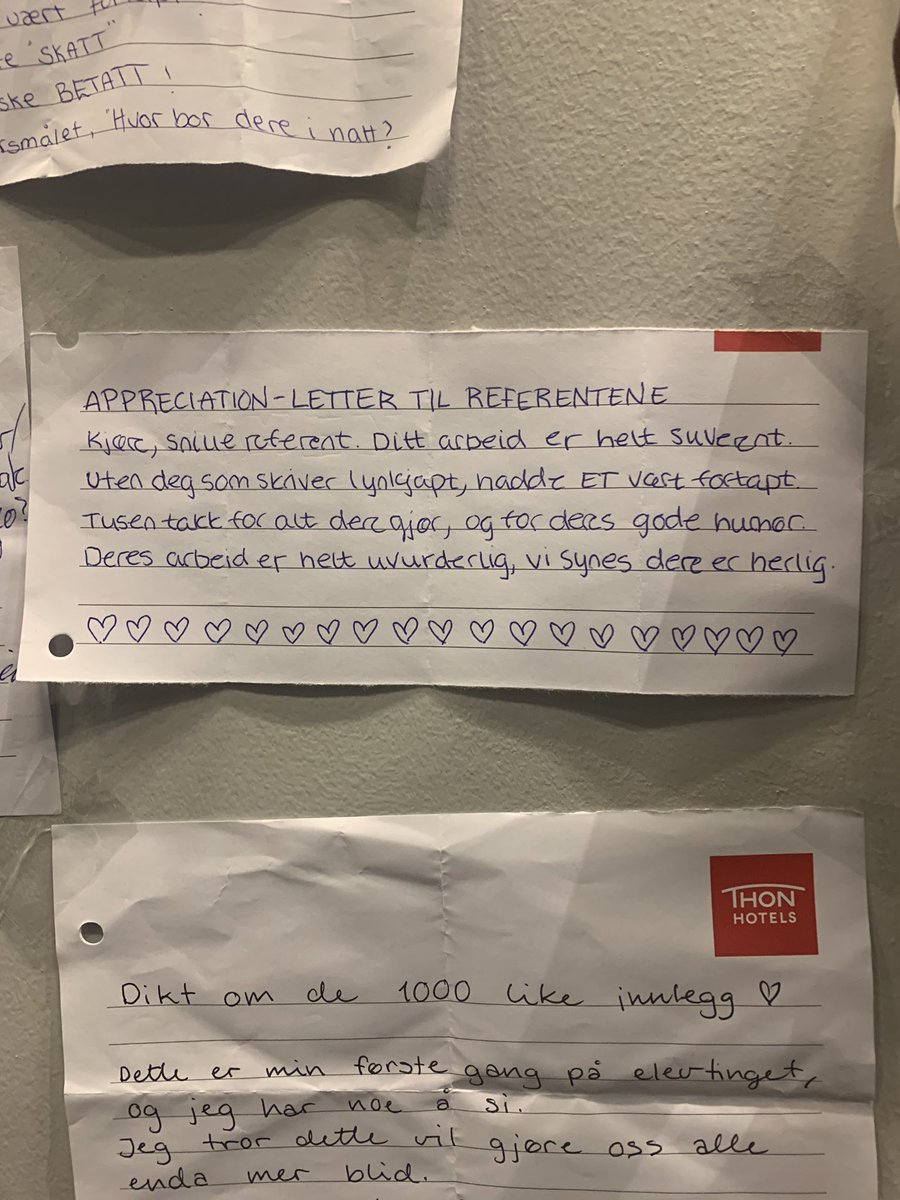 vært
"SKATT"
BETATT!
"Hvor bor dere i natt?
APPRECIATION-LETTER TIL REFERENTENE
Kjære, snille referent. Ditt arbeid er helt suverent.
Uten deg som skriver lynkjapt, hadde ET vært fortapt.
Tusen takk for alt dere gjør, og for deres gode humør.
Deres arbeid er helt uvurderlig, vi synes dere er herlig.
♡♡♡♡♡♡♡♡♡♡♡♡♡♡♡♡♡♡♡
THON
HOTELS
Dikt om de 1000 like innlegg ♡
Dette er min første gang på elevtinget,
og jeg har noe å si.
Jeg tror dette vil gjøre oss alle
enda mer blid.